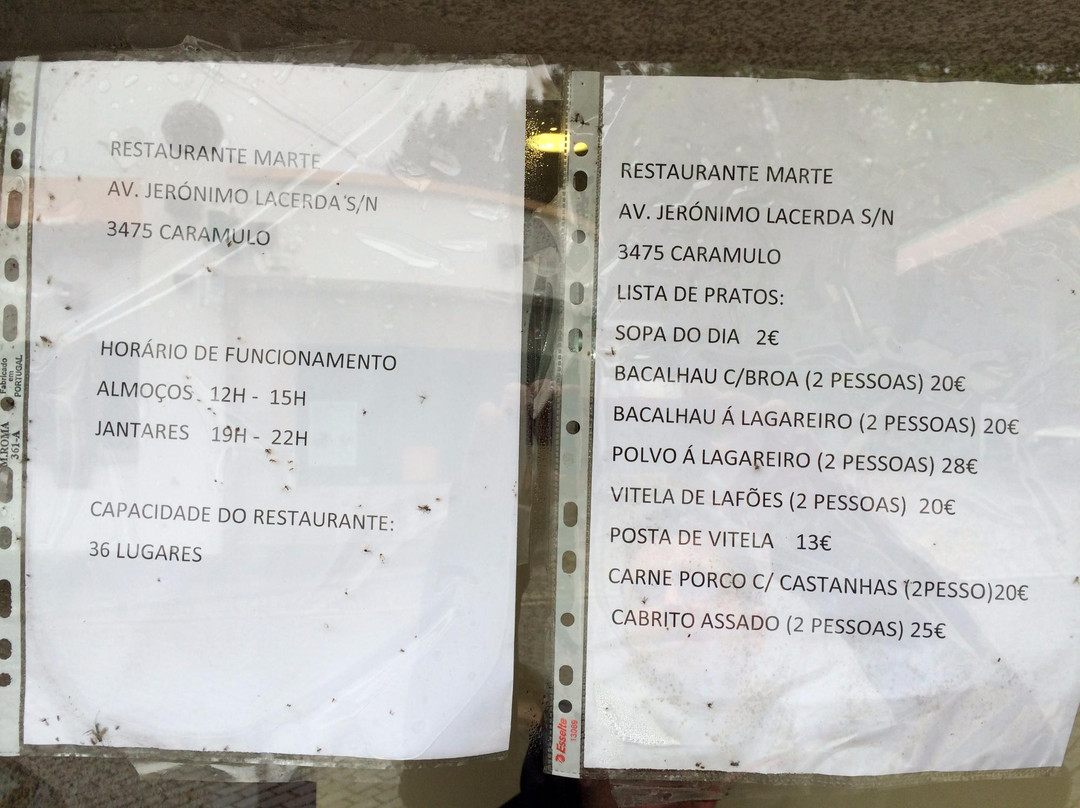 RESTAURANTE MARTE
AV. JERÓNIMO LACERDA S/N
3475 CARAMULO
HORÁRIO DE FUNCIONAMENTO
ALMOÇOS 12H - 15H
JANTARES 19H - 22H
CAPACIDADE DO RESTAURANTE:
36 LUGARES
Fabricado
em
PORTUGAL
M.ROMA
361-A
RESTAURANTE MARTE
AV. JERÓNIMO LACERDA S/N
3475 CARAMULO
LISTA DE PRATOS:
SOPA DO DIA 2€
BACALHAU C/BROA (2 PESSOAS) 20€
BACALHAU Á LAGAREIRO (2 PESSOAS) 20€
POLVO Á LAGAREIRO (2 PESSOAS) 28€
VITELA DE LAFÕES (2 PESSOAS) 20€
POSTA DE VITELA 13€
CARNE PORCO C/ CASTANHAS (2PESSO)20€
CABRITO ASSADO (2 PESSOAS) 25€
Esselte